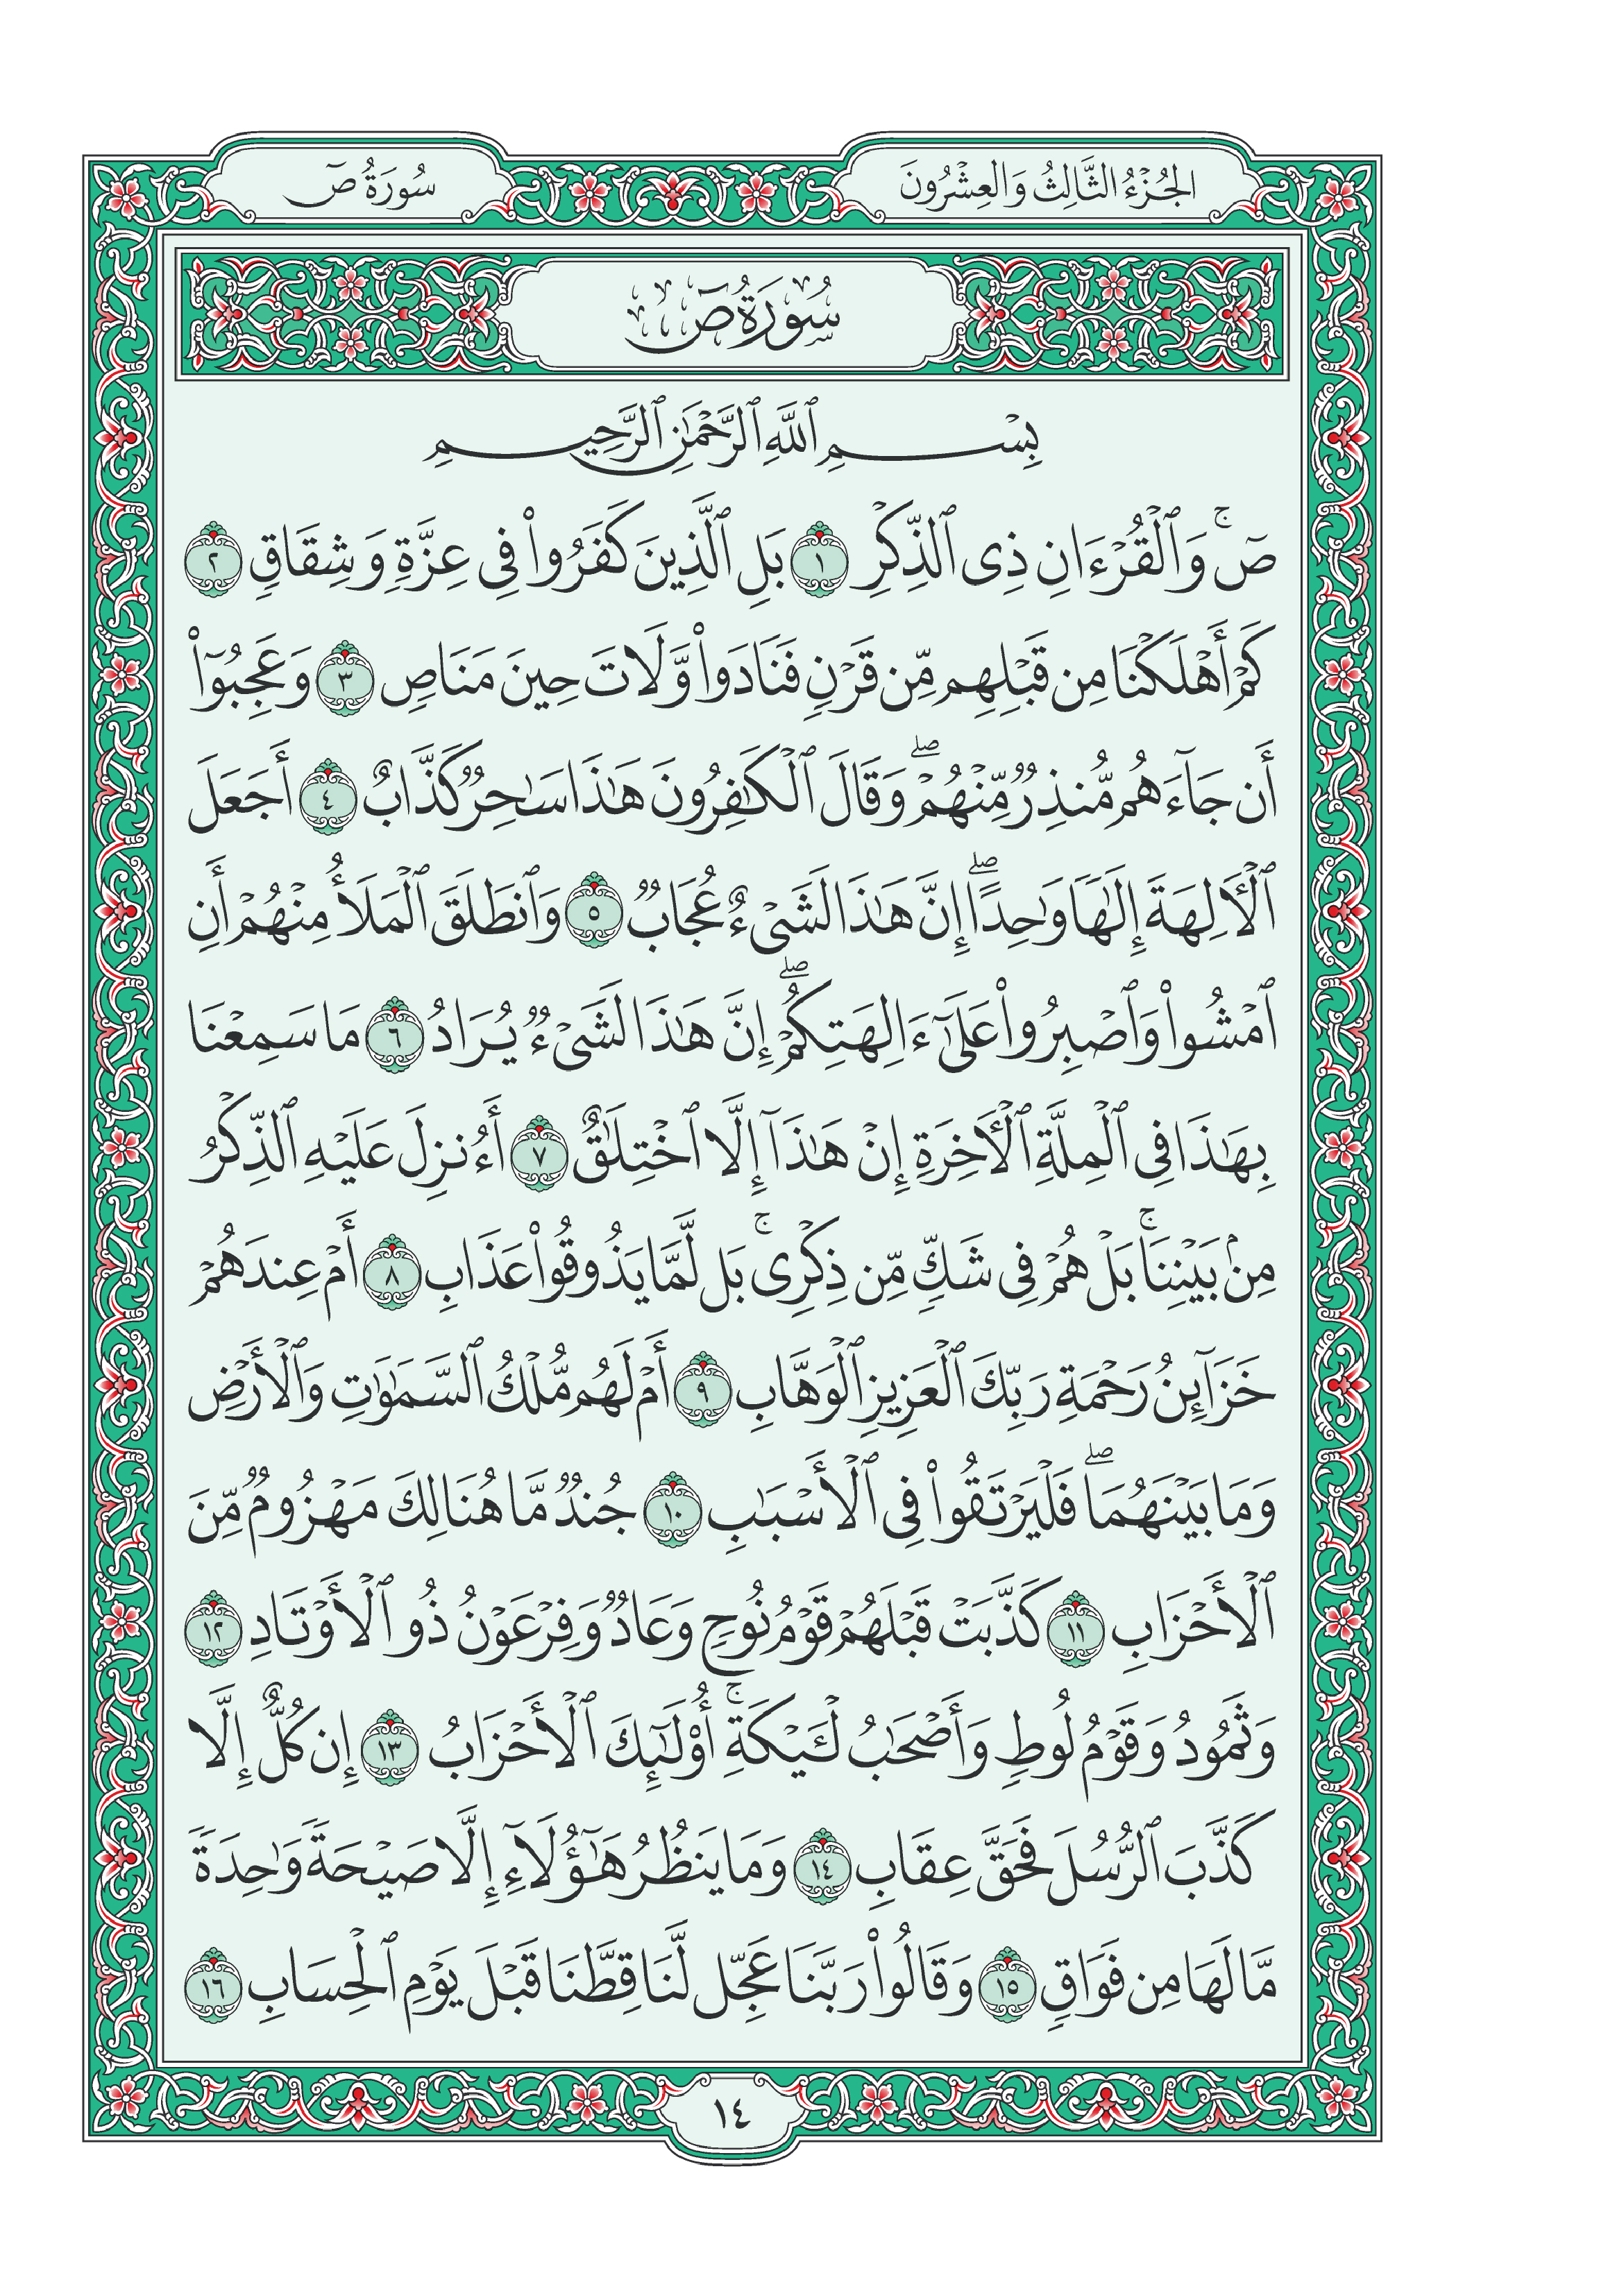 الجُزْءُ الثَّالِثُ وَالعِشْرُونَ
سُورَةُ صٓ
سُورَةُ صٓ
بِسْمِ ٱللَّهِ ٱلرَّحْمَٰنِ ٱلرَّحِيمِ
صٓۚ وَٱلْقُرْءَانِ ذِى ٱلذِّكْرِ ١ بَلِ ٱلَّذِينَ كَفَرُوا۟ فِى عِزَّةٍ وَشِقَاقٍ ٢
كَمْ أَهْلَكْنَا مِن قَبْلِهِم مِّن قَرْنٍ فَنَادَوا۟ وَّلَاتَ حِينَ مَنَاصٍ ٣ وَعَجِبُوٓا۟
أَن جَآءَهُم مُّنذِرٌ مِّنْهُمْۖ وَقَالَ ٱلْكَٰفِرُونَ هَٰذَا سَٰحِرٌ كَذَّابٌ ٤ أَجَعَلَ
ٱلْـَٔالِهَةَ إِلَٰهًا وَٰحِدًاۖ إِنَّ هَٰذَا لَشَىْءٌ عُجَابٌ ٥ وَٱنطَلَقَ ٱلْمَلَأُ مِنْهُمْ أَنِ
ٱمْشُوا۟ وَٱصْبِرُوا۟ عَلَىٰٓ ءَالِهَتِكُمْۖ إِنَّ هَٰذَا لَشَىْءٌ يُرَادُ ٦ مَا سَمِعْنَا
بِهَٰذَا فِى ٱلْمِلَّةِ ٱلْـَٔاخِرَةِ إِنْ هَٰذَآ إِلَّا ٱخْتِلَٰقٌ ٧ أَءُنزِلَ عَلَيْهِ ٱلذِّكْرُ
مِنۢ بَيْنِنَاۚ بَلْ هُمْ فِى شَكٍّ مِّن ذِكْرِىۚ بَل لَّمَّا يَذُوقُوا۟ عَذَابِ ٨ أَمْ عِندَهُمْ
خَزَآئِنُ رَحْمَةِ رَبِّكَ ٱلْعَزِيزِ ٱلْوَهَّابِ ٩ أَمْ لَهُم مُّلْكُ ٱلسَّمَٰوَٰتِ وَٱلْأَرْضِ
وَمَا بَيْنَهُمَاۖ فَلْيَرْتَقُوا۟ فِى ٱلْأَسْبَٰبِ ١٠ جُندٌ مَّا هُنَالِكَ مَهْزُومٌ مِّنَ
ٱلْأَحْزَابِ ١١ كَذَّبَتْ قَبْلَهُمْ قَوْمُ نُوحٍ وَعَادٌ وَفِرْعَوْنُ ذُو ٱلْأَوْتَادِ ١٢
وَثَمُودُ وَقَوْمُ لُوطٍ وَأَصْحَٰبُ لْـَٔيْكَةِۚ أُو۟لَٰٓئِكَ ٱلْأَحْزَابُ ١٣ إِن كُلٌّ إِلَّا
كَذَّبَ ٱلرُّسُلَ فَحَقَّ عِقَابِ ١٤ وَمَا يَنظُرُ هَٰٓؤُلَآءِ إِلَّا صَيْحَةً وَٰحِدَةً
مَّا لَهَا مِن فَوَاقٍ ١٥ وَقَالُوا۟ رَبَّنَا عَجِّل لَّنَا قِطَّنَا قَبْلَ يَوْمِ ٱلْحِسَابِ ١٦
١٤